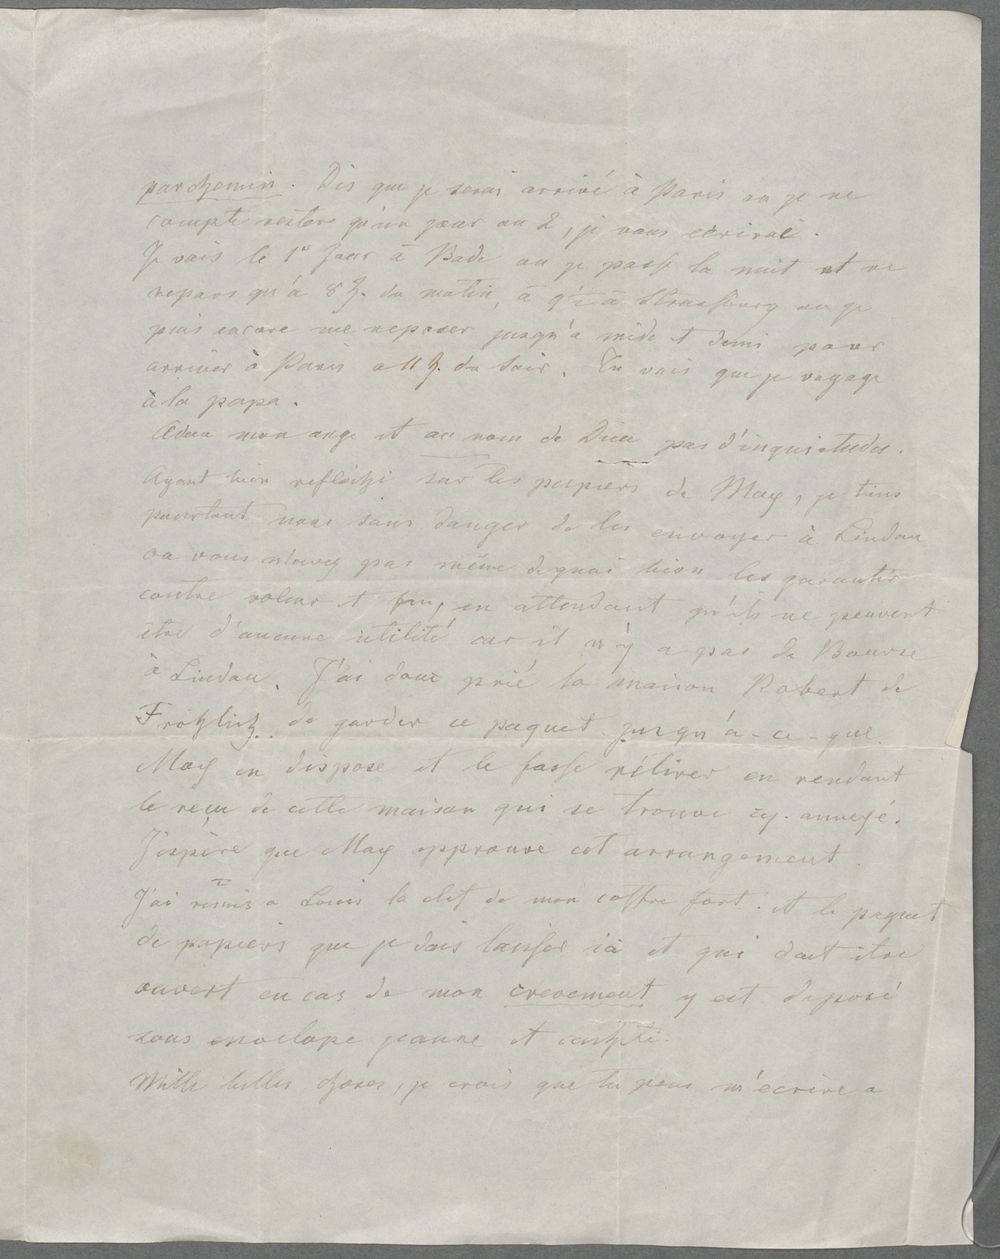 parchemin. Dès que je serai arrivé à Paris ou je ne
compte rester qu'un jour ou 2, je vous écrirai.
Je vais le 1er jour à Bade ou je passe la nuit et ne
repars qu'à 8 h. du matin, à Strassburg ou je
puis encore me reposer jusqu'à midi et demi pour
arriver à Paris a 11 h. du soir. Tu vois que je voyage
à la papa.
Adieu mon ange et au nom de Dieu pas d'inquietudes.
Ayant bien refléchi sur les papiers de Max, je
pourtant sans danger de les envoyer à Lindau
ou vous n'avez pas même de quoi bien les garantir
contre voleur et feu, en attendant qu'ils ne peuvent
être d'aucune utilité car il n'y a pas de Bourse
à Lindau. J'ai donc prié la maison Robert de
Fröhlich de garder ce paquet jusqu'à-ce-que
Max en dispose et le fasse rétirer en rendant
le reçu de cette maison qui se trouve cy-annexé.
J'espère que Max approuve cet arrangement.
J'ai remis a Louis la clef de mon coffre fort. et le paquet
de papiers que je dois laisser ici et qui doit être
ouvert en cas de mon crevement y est deposé
sous envelope jaune et
Mille belles choses, je crois que tu peux m'écrire a